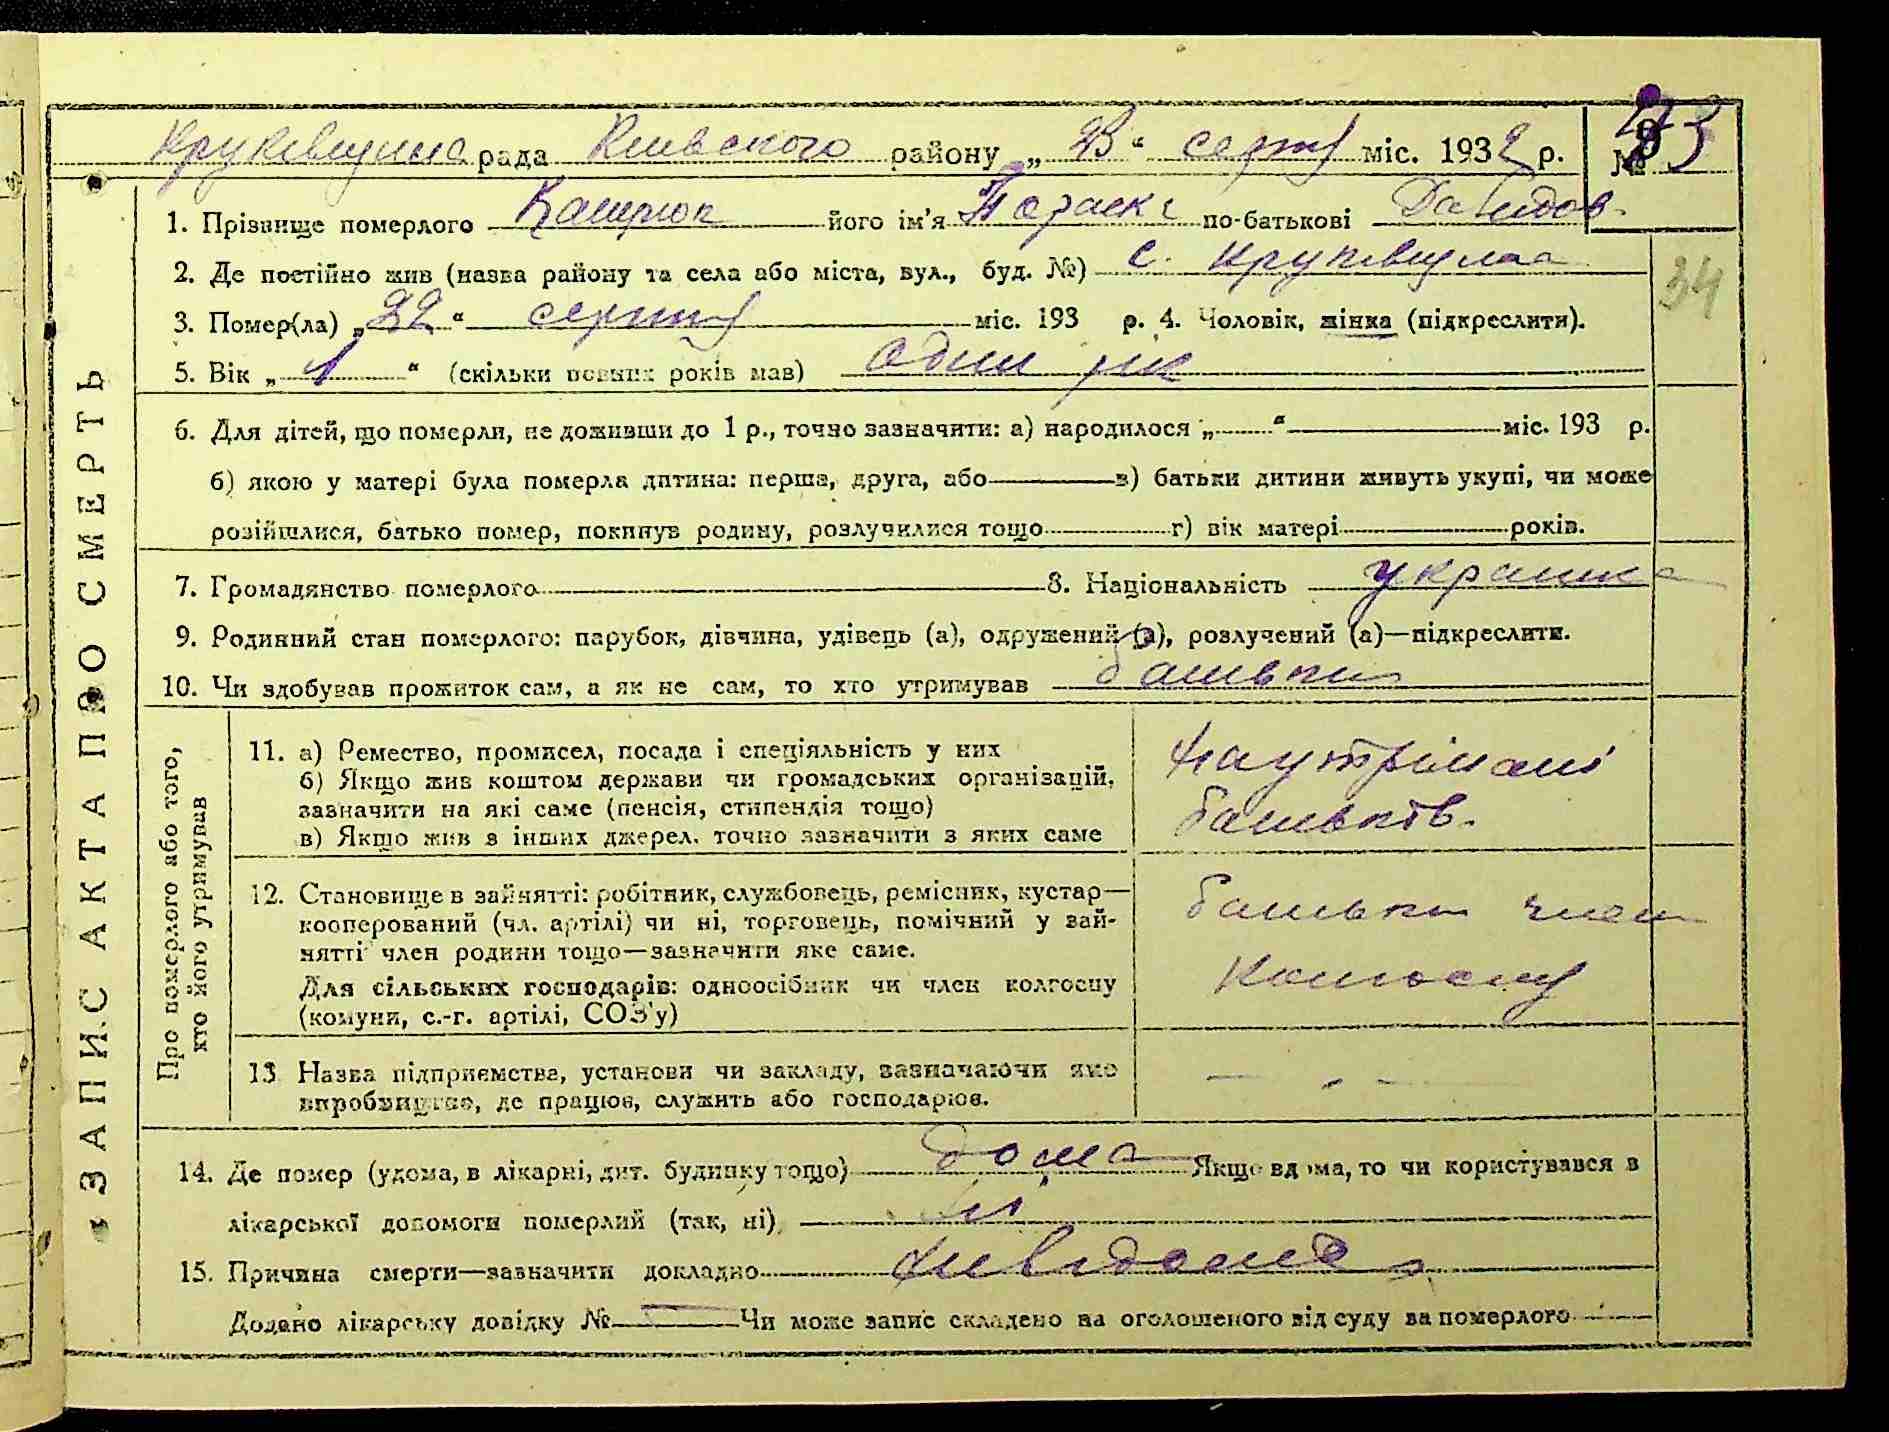 ЗАПИС АКТА ПРО СМЕРТЬ
рада Київського району „23“ серпня міс. 1932 р. №
1. Прізвище померлого його ім'я Параска по-батькові Давидов.
2. Де постійно жив (назва району та села або міста, вул., буд. №) с.
3. Помер(ла) „22“ серпня міс. 193 р. 4. Чоловік, жінка (підкреслити).
34
5. Вік „1“ (скільки повних років мав) один рік
6. Для дітей, що померли, не доживши до 1 р., точно зазначити: а) народилося „ “ міс. 193 р.
б) якою у матері була померла дитина: перша, друга, або в) батьки дитини живуть укупі, чи може
розійшлися, батько помер, покинув родину, розлучилися тощо г) вік матері років.
7. Громадянство померлого 8. Національність українка
9. Родинний стан померлого: парубок, дівчина, удівець (а), одружений (а), розлучений (а)—підкреслити.
10. Чи здобував прожиток сам, а як не сам, то хто утримував батьки
Про померлого або того,
хто його утримував
11. а) Ремество, промисел, посада і спеціяльність у них
б) Якщо жив коштом держави чи громадських організацій,
зазначити на які саме (пенсія, стипендія тощо)
в) Якщо жив з інших джерел, точно зазначити з яких саме
на утрімані
батьків.
12. Становище в зайнятті: робітник, службовець, ремісник, кустар—
кооперований (чл. артілі) чи ні, торговець, помічний у зай-
нятті член родини тощо—зазначити яке саме.
Для сільських господарів: одноосібник чи член колгоспу
(комуни, с.-г. артілі, СОЗ'у)
батьки член
колгоспу
13 Назва підприємства, установи чи закладу, зазначаючи яке
виробництво, де працює, служить або господарює.
14. Де помер (удома, в лікарні, дит. будинку тощо) дома Якщо вдома, то чи користувався в
лікарської допомоги померлий (так, ні), ні
15. Причина смерти—зазначити докладно невідома
Додано лікарську довідку № Чи може запис складено на оголошеного від суду за померлого